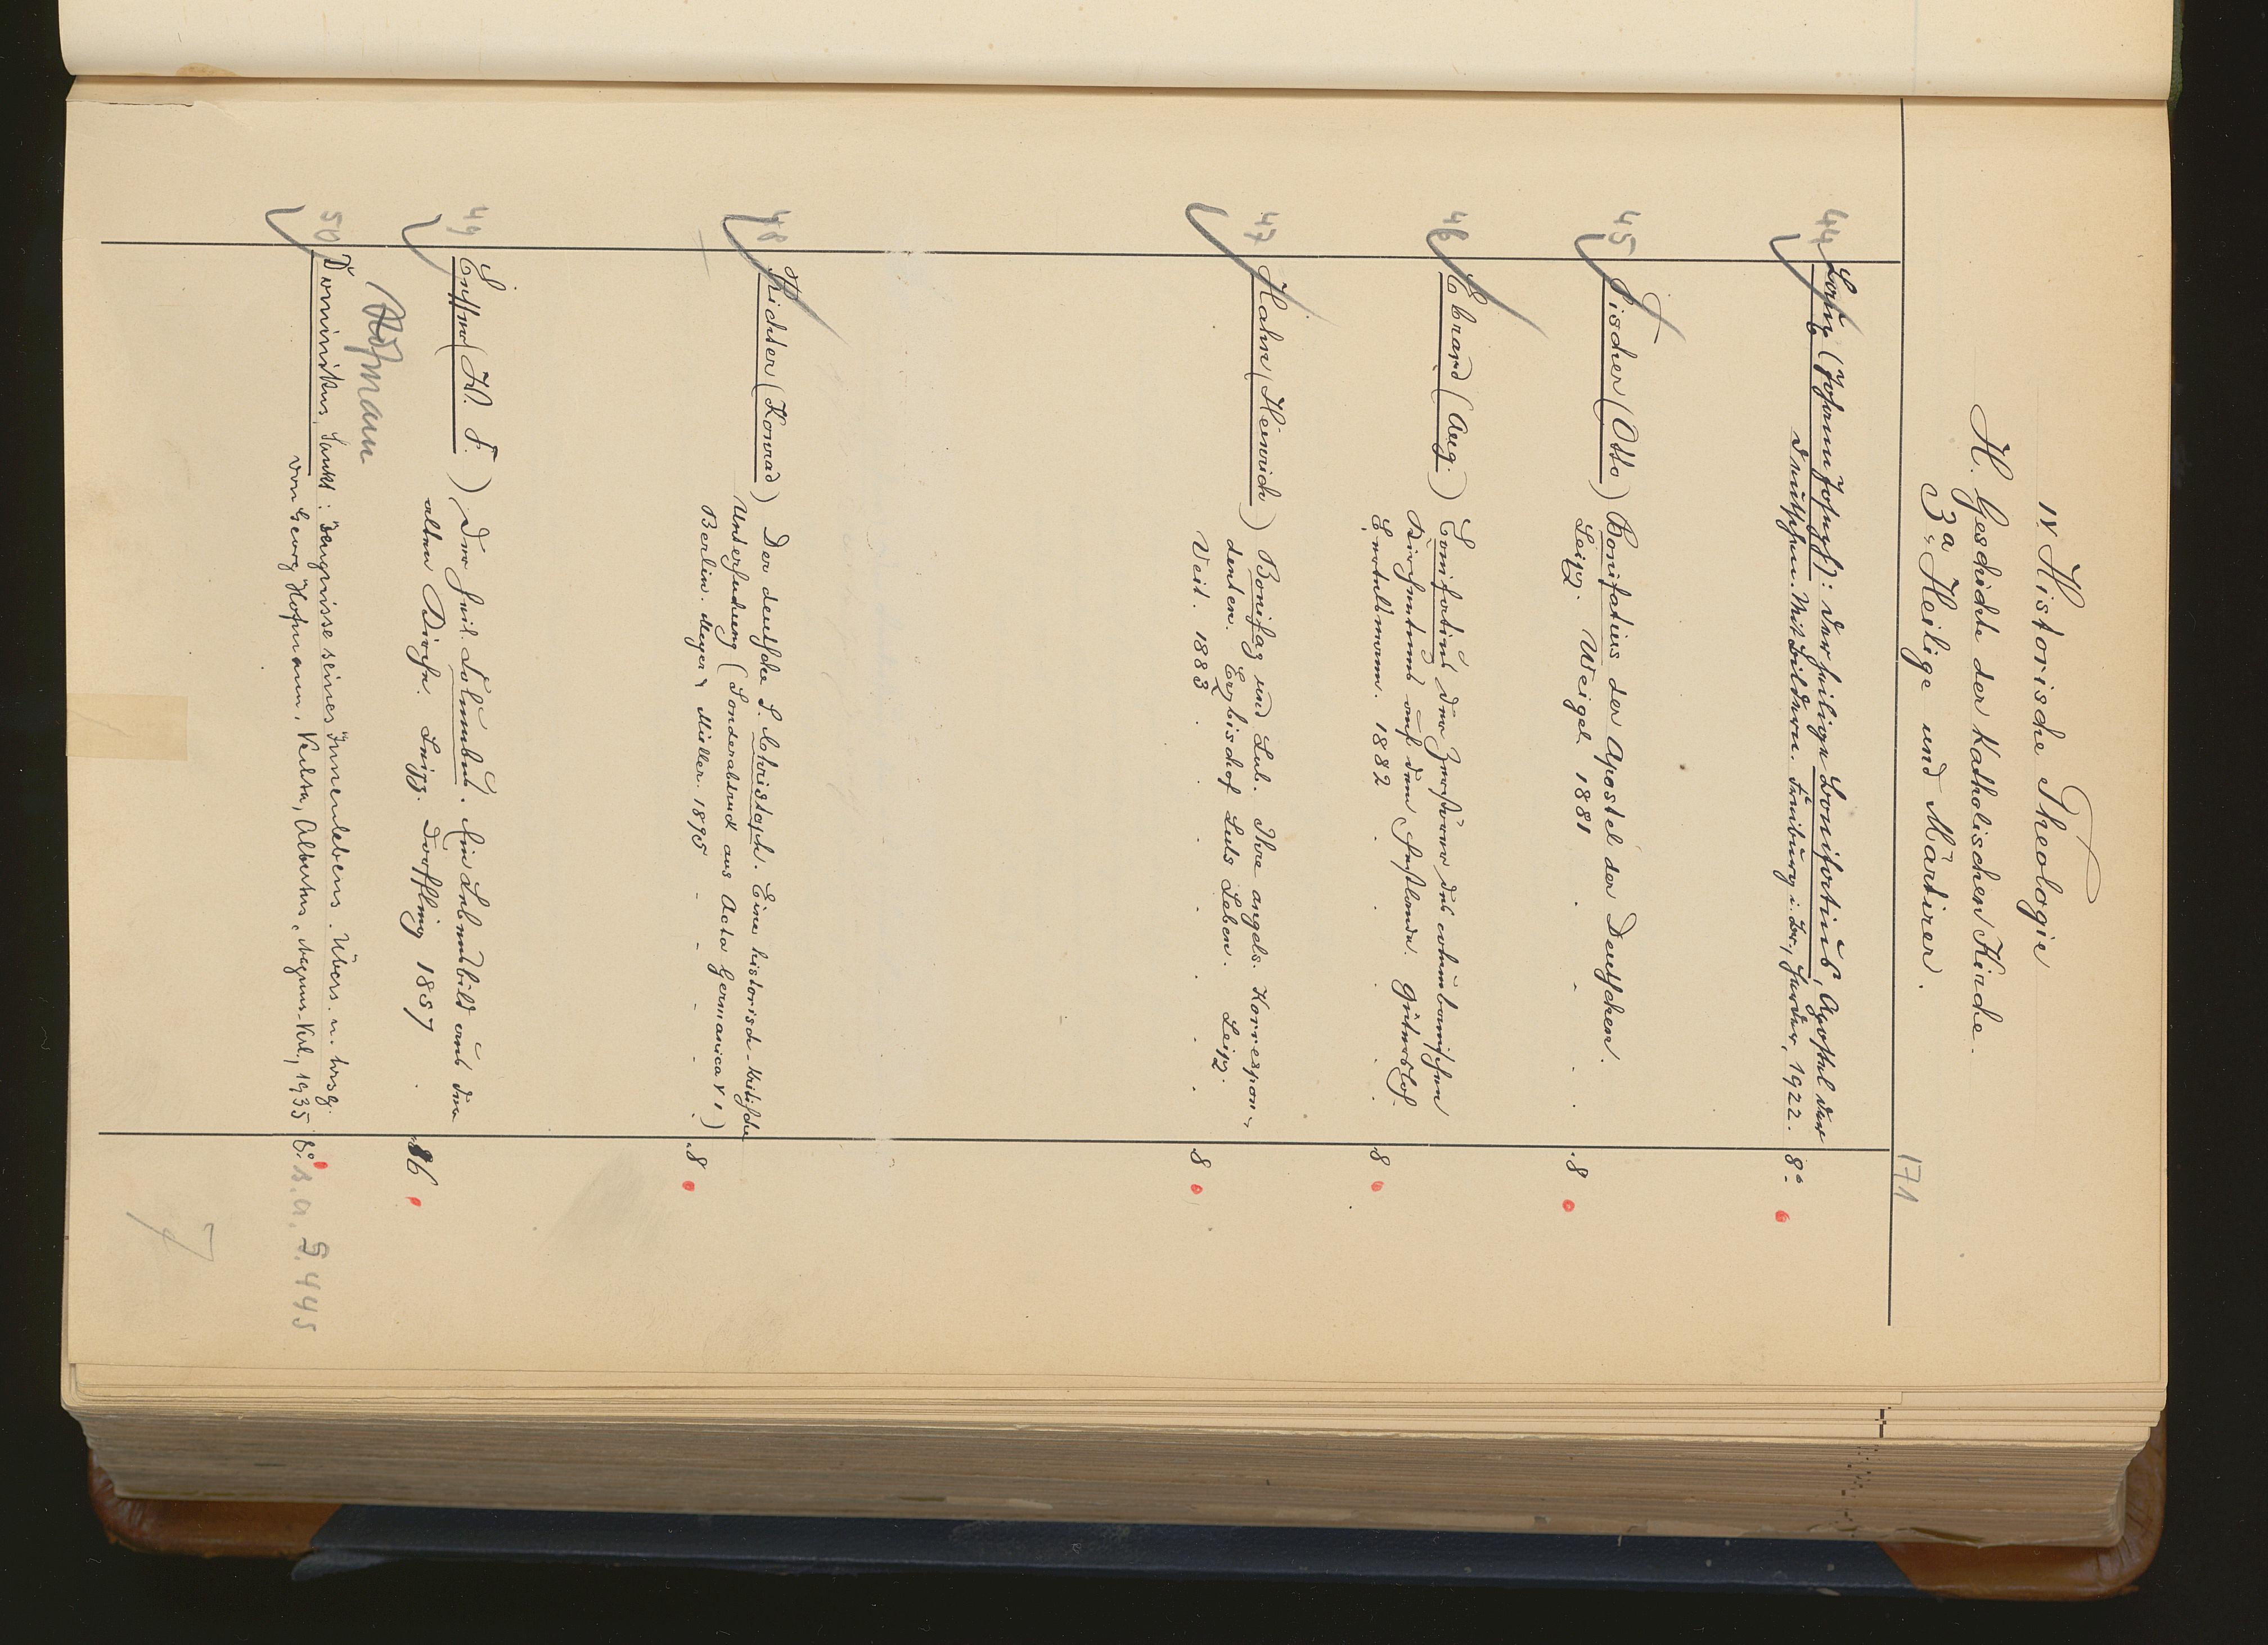 IV Historische Theologie
H. Geschichte der Katholischen Kirche.
3a, Heilige und Märtirer.
171
44 Laux (Johann Joseph): Der heilige Bonifatius, Apostel der
Deutschen. Mit Bildern. Freiburg i. Br., Herder, 1922. 8°.
45 Fischer (Otto) Bonifatius der Apostel der Deutschen.
Leipz. Weigel 1881 . . . . 8
46 Ebrard (Aug.) Bonifatius der Zerstörer des columbanischen
Kirchentums auf dem Festlande. Gütersloh.
Bertelsmann. 1882 . . . . 8
47 Hahn (Heinrich) Bonifaz und Lul. Ihre angels. Korrespon-
denten. Erzbischof Luls Leben. Leipz.
Veit. 1883 . . . . . . 8
48 Richter (Konrad) Der deutsche S. Christoph. Eine historisch-kritische
Untersuchung (Sonderabdruck aus Acta Germanica V 1)
Berlin. Meyer & Müller. 1895 - - - . . 8
49 (H. F.) Der heil. Columban. Ein Lebensbild aus der
alten Kirche. Leipz. Dörffling 1857 . 16
Hofmann
50 Dominikus, Sankt: Zeugnisse seines Innenlebens. Übers. u. hrsg.
von Georg Hofmann, Vechta, Albertus-Magnus-Verl., 1935 8°. s. a. G. 445